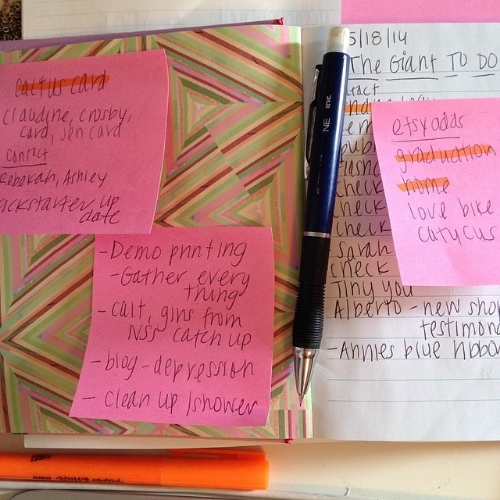 cactus card
Claudine, Crosby,
card, jen card
contact
Rebekah, Ashley
kickstarter up
date
-Demo printing
-Gather every
thing
-calt, gins from
NSS catch up
-blog-depression
- clean up/shower
5/18/14
The Giant TO DO
etsy adds
graduation
home
love bike
catycus
check
check
check
Sarah
check
Tiny you
Alberto - new shop
testimon
-Annies blue ribbon
NE inc.